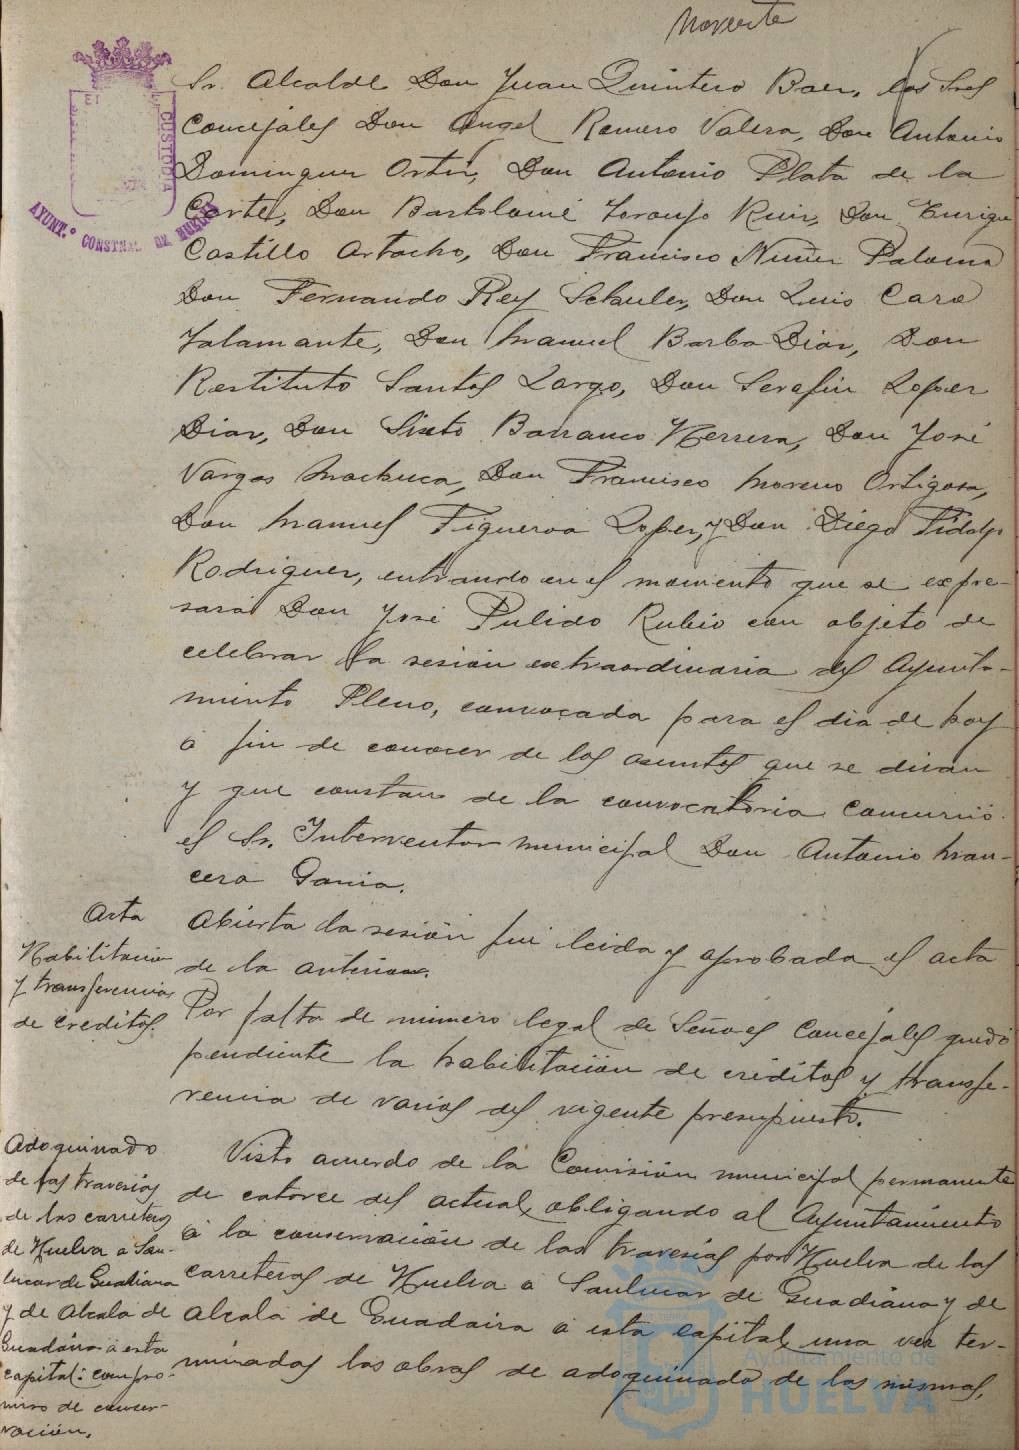 Noventa
AYUNT.º CONSTNAL DE HUELVA
CUSTODIA
Sr. Alcalde Don Juan Quintero Baez, los Sres
Concejales Don Angel Romero Valera, Don Antonio
Dominguez Ortiz, Don Antonio Plata de la
Corte, Don Bartolomé Toronjo Ruiz, Don Enrique
Castillo Artacho, Don Francisco Nuñez Paloma
Don Fernando Rey Schuler, Don Luis Caro
Talamante, Don Manuel Barba Diaz, Don
Restituto Santos Largo, Don Serafin Lopez
Diaz, Don Sixto Barranco Herrera, Don José
Vargas Machuca, Don Francisco Moreno Ortigosa,
Don Manuel Figueroa Lopez, y Don Diego Fidalgo
Rodriguez, entrando en el momento que se expre-
sará Don José Pulido Rubio con objeto de
celebrar la sesión extraordinaria del Ayunta-
miento Pleno, convocada para el dia de hoy
á fin de conocer de los asuntos que se diran
y que constan de la convocatoria Concurrió
el Sr. Interventor municipal Don Antonio Man-
cera Garcia.
Acta
Abierta la sesión fué leida y aprobada el acta
de la anterior.
Habilitación
y transferencias
de creditos.
Por falta de número legal de Señores Concejales quedó
pendiente la habilitación de créditos y transfe-
rencia de varios del vigente presupuesto.
Adoquinado
de las travesias
de las carreteras
de Huelva a San-
lucar de Guadiana
y de Alcalá de
Guadaira a esta
capital: compro-
miso de conser-
vación.
Visto acuerdo de la Comisión municipal permanente
de catorce del actual, obligando al Ayuntamiento
á la conservación de las travesias por Huelva de las
carreteras de Huelva a Sanlucar de Guadiana y de
Alcalá de Guadaira a esta capital, una vez ter-
minadas las obras de adoquinado de las mismas,
Ayuntamiento de
HUELVA